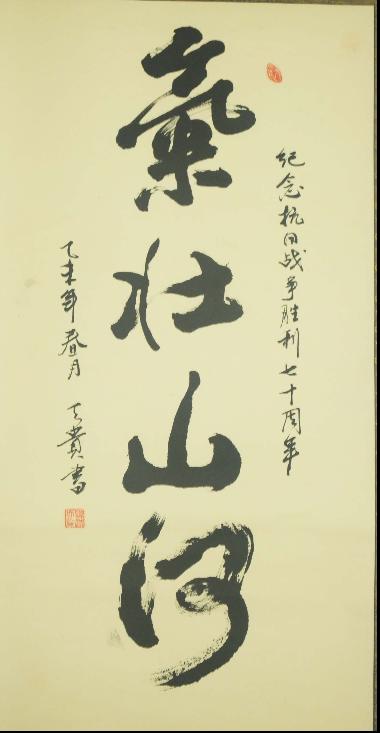 纪念抗日战争胜利七十周年
氣壮山河
乙未年春月 天貴書